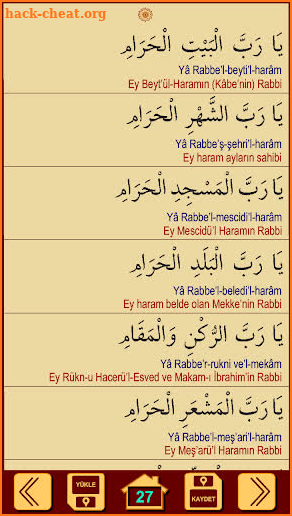 hack-cheat.org
يَا رَبَّ الْبَيْتِ الْحَرَامِ
Yâ Rabbe'l-beyti'l-harâm
Ey Beyt'ül-Haramın (Kâbe'nin) Rabbi
يَا رَبَّ الشَّهْرِ الْحَرَامِ
Yâ Rabbe'ş-şehri'l-harâm
Ey haram ayların sahibi
يَا رَبَّ الْمَسْجِدِ الْحَرَامِ
Yâ Rabbe'l-mescidi'l-harâm
Ey Mescidü'l Haramın Rabbi
يَا رَبَّ الْبَلَدِ الْحَرَامِ
Yâ Rabbe'l-beledi'l-harâm
Ey haram belde olan Mekke'nin Rabbi
يَا رَبَّ الرُّكْنِ وَالْمَقَامِ
Yâ Rabbe'r-rukni ve'l-mekâm
Ey Rükn-u Hacerü'l-Esved ve Makam-ı İbrahim'in Rabbi
يَا رَبَّ الْمَشْعَرِ الْحَرَامِ
Yâ Rabbe'l-meş'ari'l-harâm
Ey Meş'arü'l Haramın Rabbi
YÜKLE
27
KAYDET